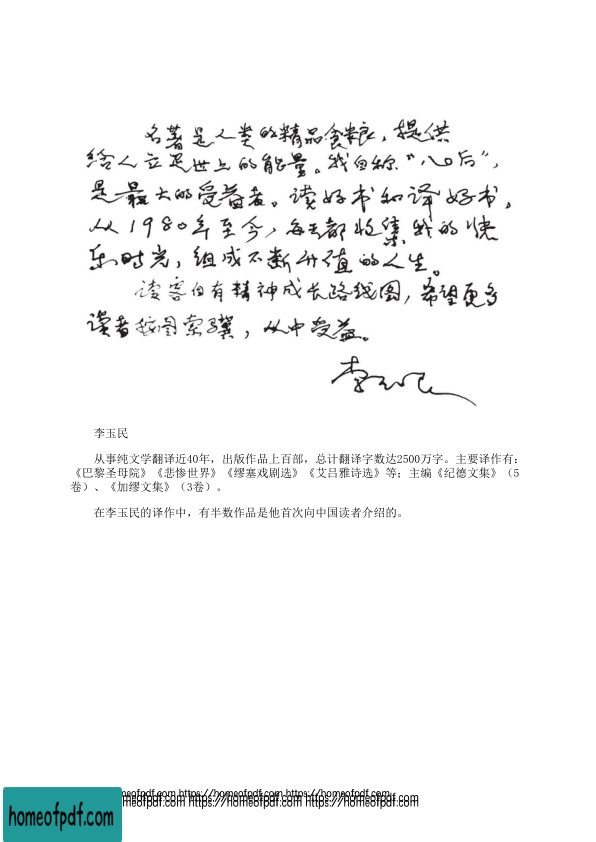 名著是人类的精品食粮，提供
给人立足世上的能量。我自称“八〇后”，
是最大的受益者。读好书和译好书，
从1980年至今，每天都收集我的快
乐时光，组成不断升值的人生。
读客自有精神成长路线图，希望更多
读者按图索骥，从中受益。
李玉民
李玉民
从事纯文学翻译近40年，出版作品上百部，总计翻译字数达2500万字。主要译作有：
《巴黎圣母院》《悲惨世界》《缪塞戏剧选》《艾吕雅诗选》等；主编《纪德文集》（5
卷）、《加缪文集》（3卷）。
在李玉民的译作中，有半数作品是他首次向中国读者介绍的。
homeofpdf.com https://homeofpdf.com https://homeofpdf.com
homeofpdf.com https://homeofpdf.com https://homeofpdf.com
homeofpdf.com